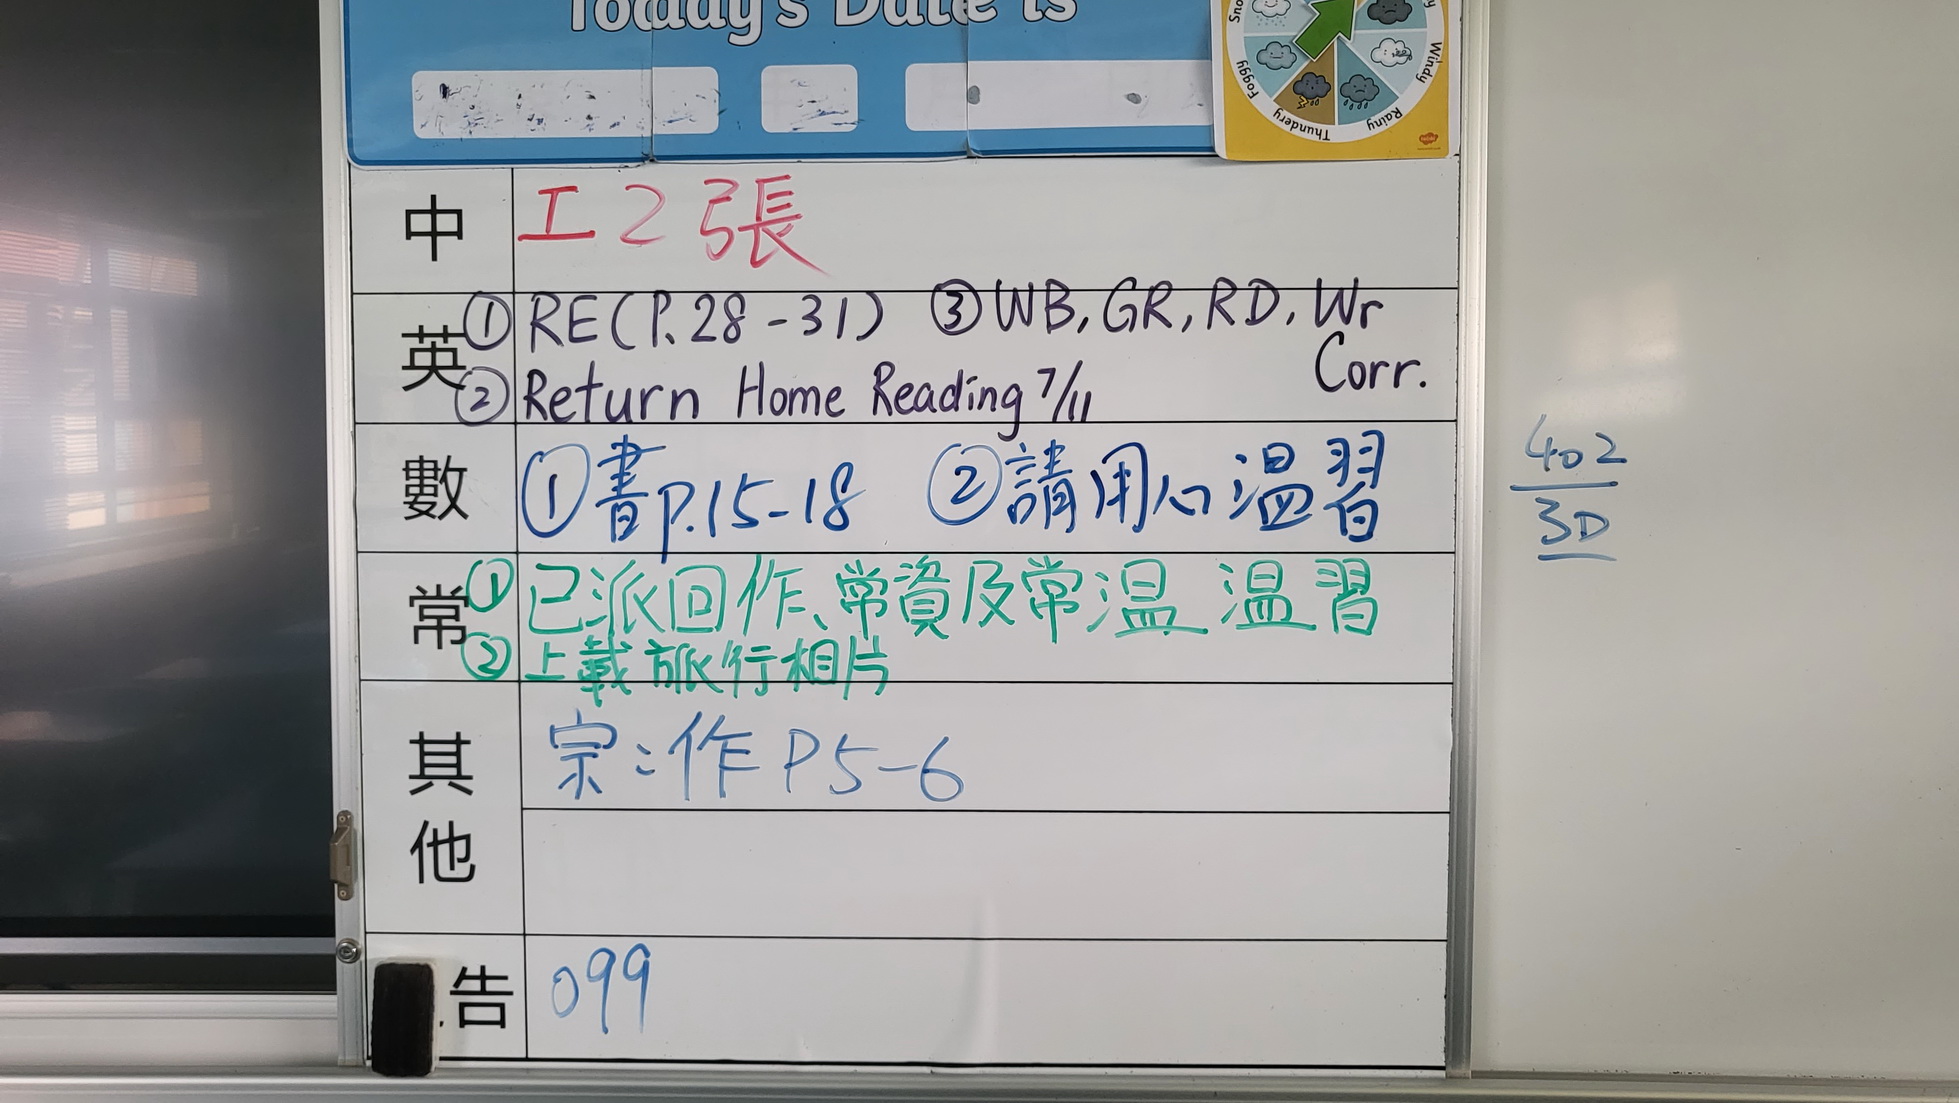 Today's Date is
Foggy
Thundery
Rainy
Windy
中 工2張
英 ①RE(P.28-31) ③WB, GR, RD, Wr Corr.
②Return Home Reading 7/11
數 ①書p.15-18 ②請用心溫習
常 ①已派回作、常資及常溫 溫習
②上載旅行相片
其他 宗:作P5-6
告 099
402
3D